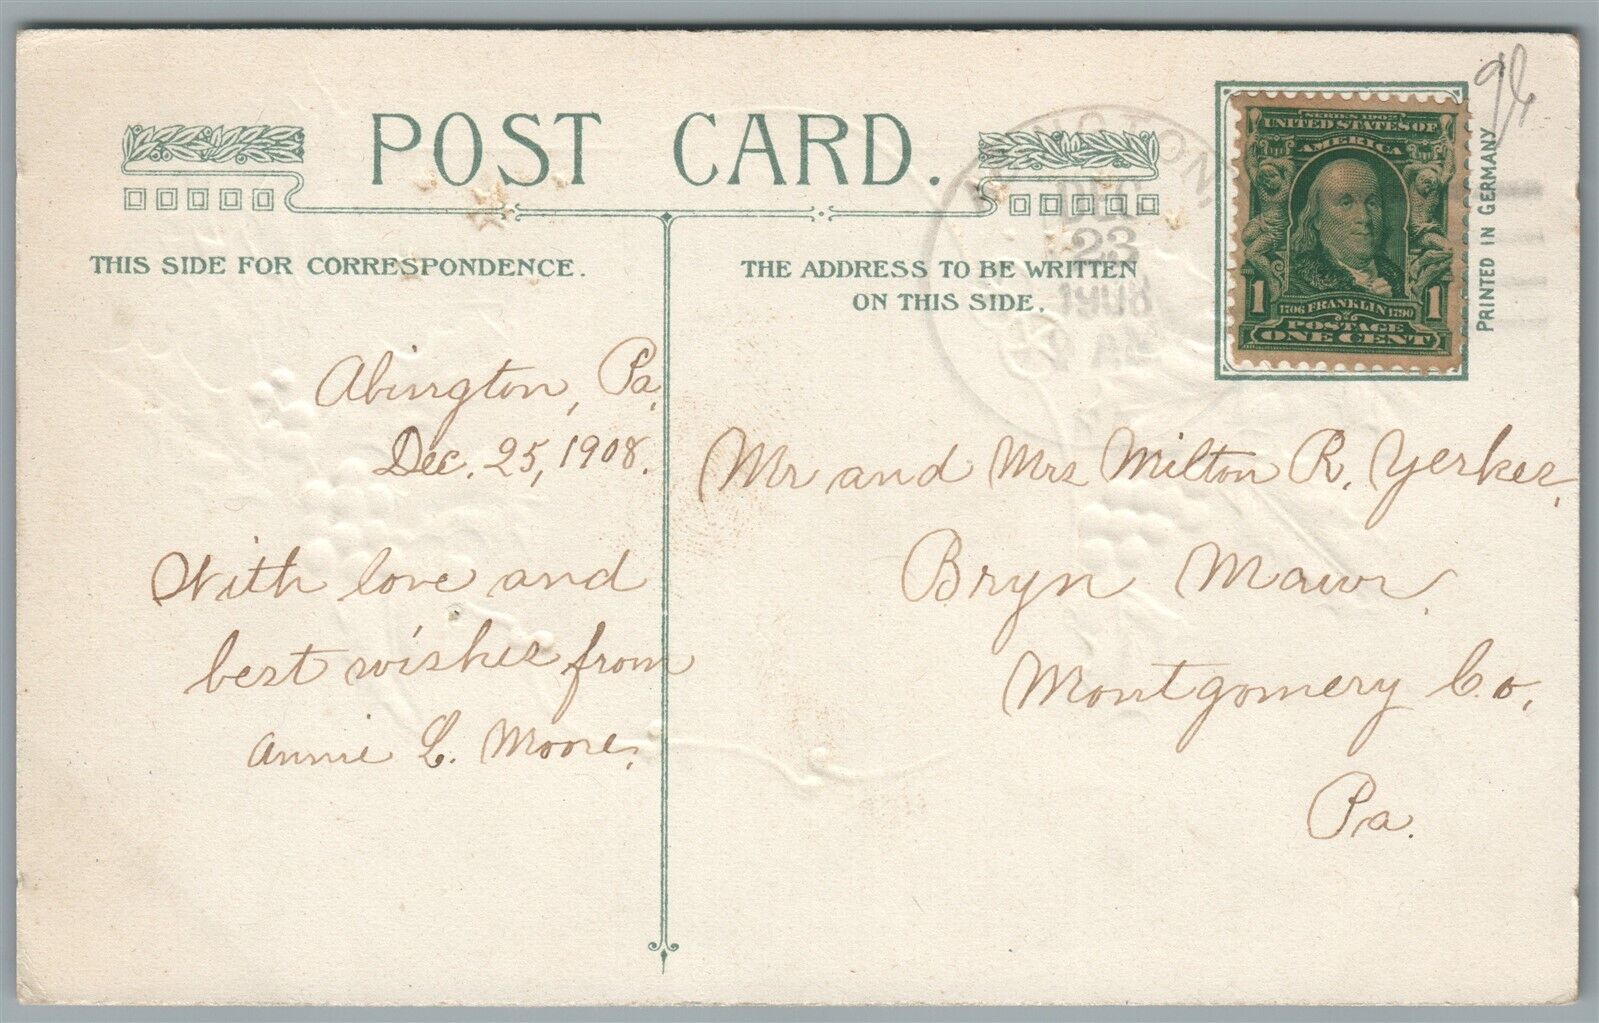 POST CARD.
THIS SIDE FOR CORRESPONDENCE.
THE ADDRESS TO BE WRITTEN
ON THIS SIDE.
DEC
23
1908
SERIES 1902
UNITED STATES OF
AMERICA
1 1
1706 FRANKLIN 1790
POSTAGE
ONE CENT
PRINTED IN GERMANY
Abington, Pa,
Dec. 25, 1908.
With love and
best wishes from
Annie L. Moore.
Mr and Mrs Milton R. Yerkes,
Bryn Mawr,
Montgomery Co,
Pa.